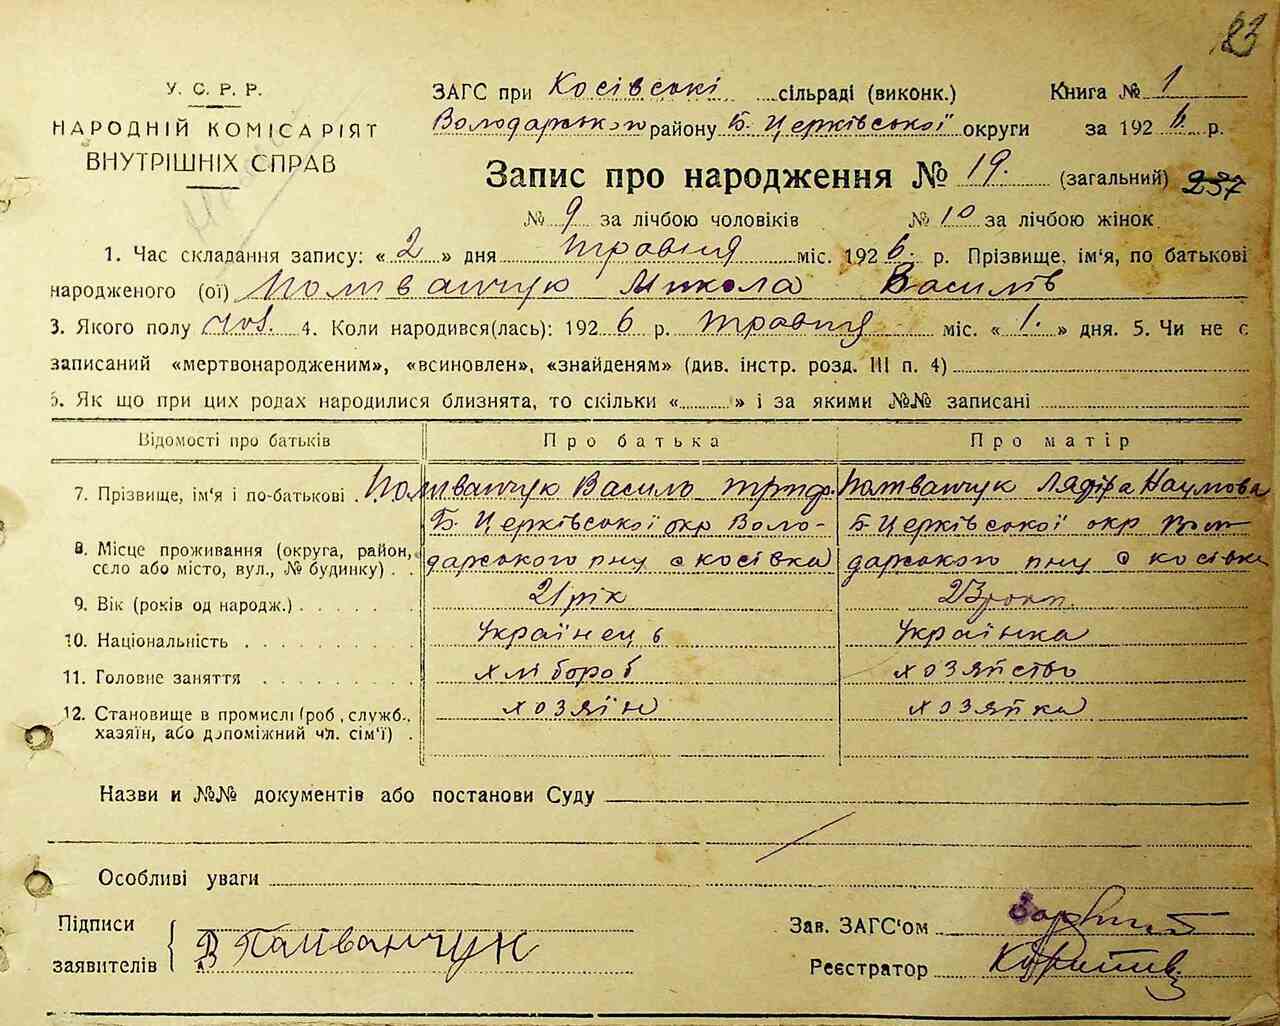 У. С. Р. Р.
НАРОДНІЙ КОМІСАРІЯТ
ВНУТРІШНІХ СПРАВ
ЗАГС при Косівські сільраді (виконк.) Книга № 1
Володарського району Б. Церківської округи за 1926 р.
Запис про народження № 19. (загальний) 237
№ 9 за лічбою чоловіків № 10 за лічбою жінок
1. Час складання запису: « 2 » дня травня міс. 1926 р. Прізвище, ім'я, по батькові
народженого (ої) Поліванчук Микола Василів
3. Якого полу чол. 4. Коли народився(лась): 1926 р. травня міс. « 1. » дня. 5. Чи не є
записаний «мертвонародженим», «всиновлен», «знайденям» (див. інстр. розд. III п. 4)
6. Як що при цих родах народилися близнята, то скільки « » і за якими №№ записані
Відомості про батьків Про батька Про матір
7. Прізвище, ім'я і по-батькові . Поліванчук Василь Поліванчук Наумова
8. Місце проживання (округа, район, село або місто, вул., № будинку) . . Б. Церківської окр Воло-
дарського рну с косівка
Б Церківської окр Вол
дарського рну с косівка
9. Вік (років од народж.) . . . . . . 21 рік 23 роки
10. Національність . . . . . . . . . українець українка
11. Головне заняття . . . . . . . . хлібороб хозяйство
12. Становище в промислі (роб., служб., хазяїн, або допоміжний чл. сім'ї) . хозяїн хозяйка
Назви и №№ документів або постанови Суду
Особливі уваги
Підписи
заявителів
В Поліванчук
Зав. ЗАГС'ом
Реєстратор